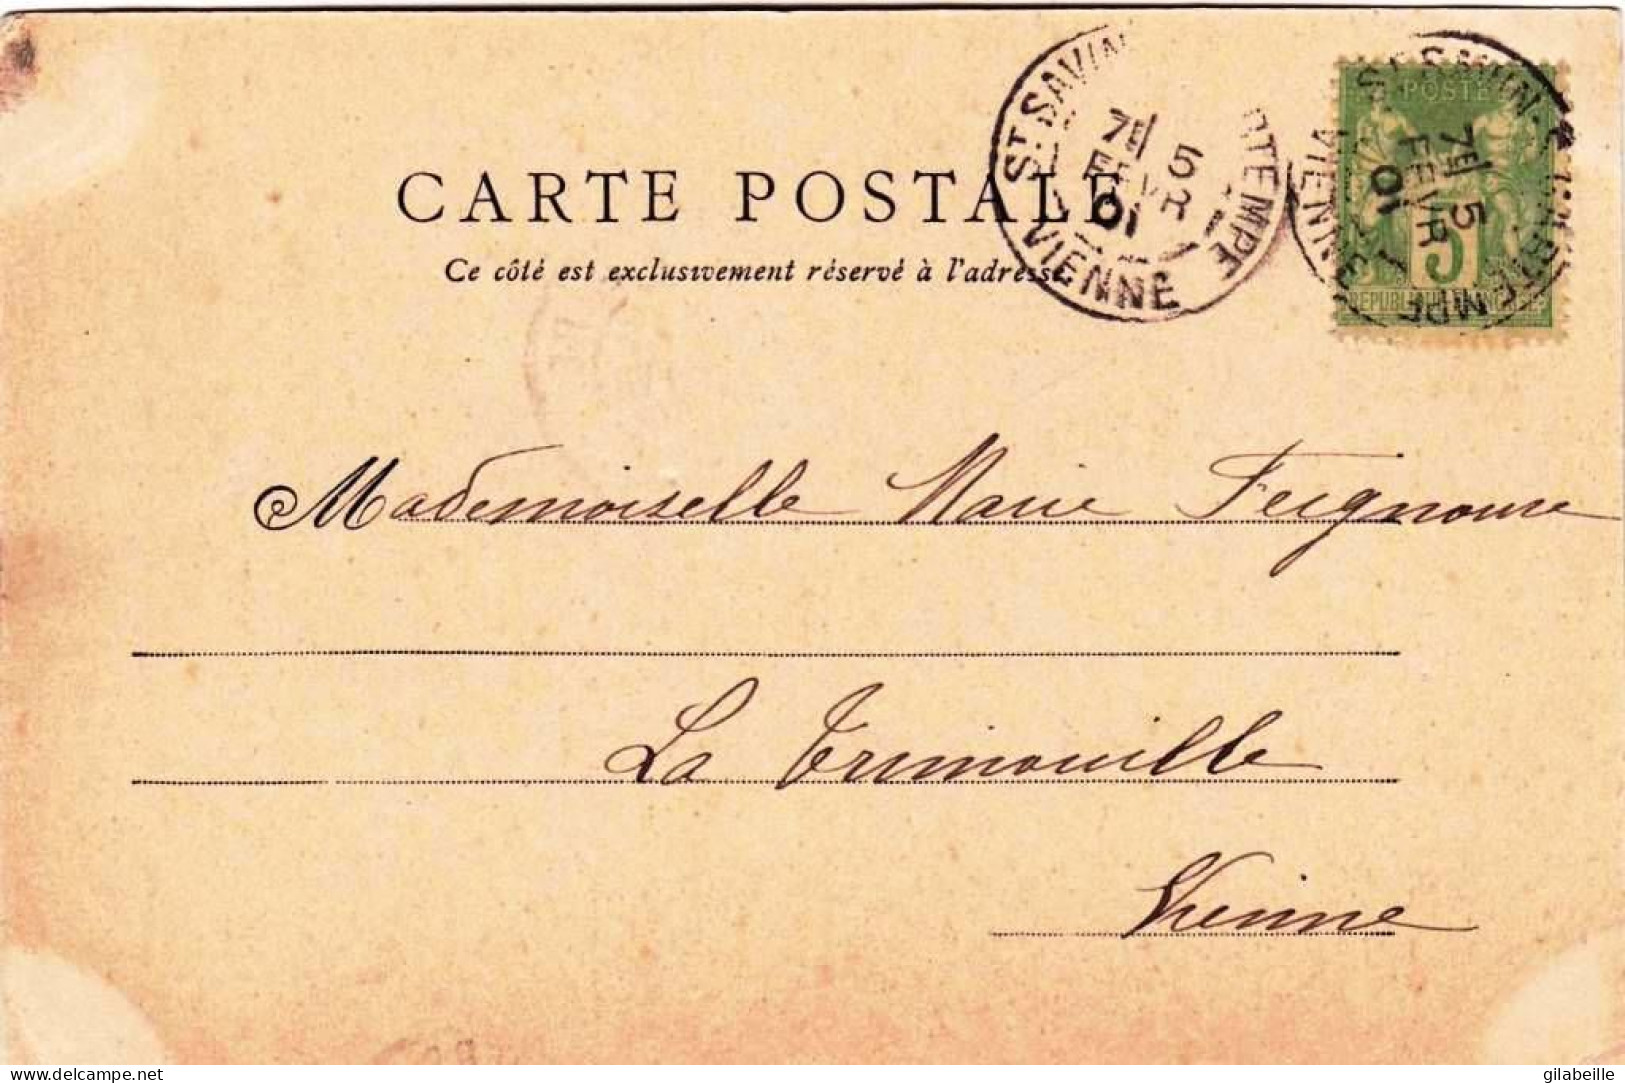 CARTE POSTALE
Ce côté est exclusivement réservé à l'adresse
ST SAVIN RTEMPE
7E 5
FEVR
01
VIENNE
POSTE
5
REPUBLIQUE FRANÇAISE
ST SAVIN RTEMPE
7E 5
FEVR
01
VIENNE
Mademoiselle Marie
La Trimouille
Vienne
delcampe.net
gilabeille